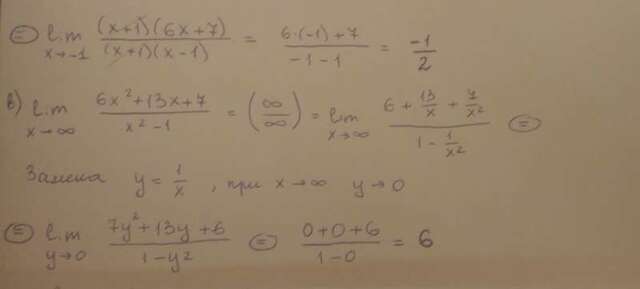 = lim x→-1 (x+1)(6x+7) / (x+1)(x-1) = 6·(-1)+7 / -1-1 = -1/2
в) lim x→∞ 6x²+13x+7 / x²-1 = (∞/∞) = lim x→∞ 6 + 13/x + 7/x² / 1 - 1/x² =
Замена y = 1/x , при x→∞ y→0
= lim y→0 7y²+13y+6 / 1-y² = 0+0+6 / 1-0 = 6